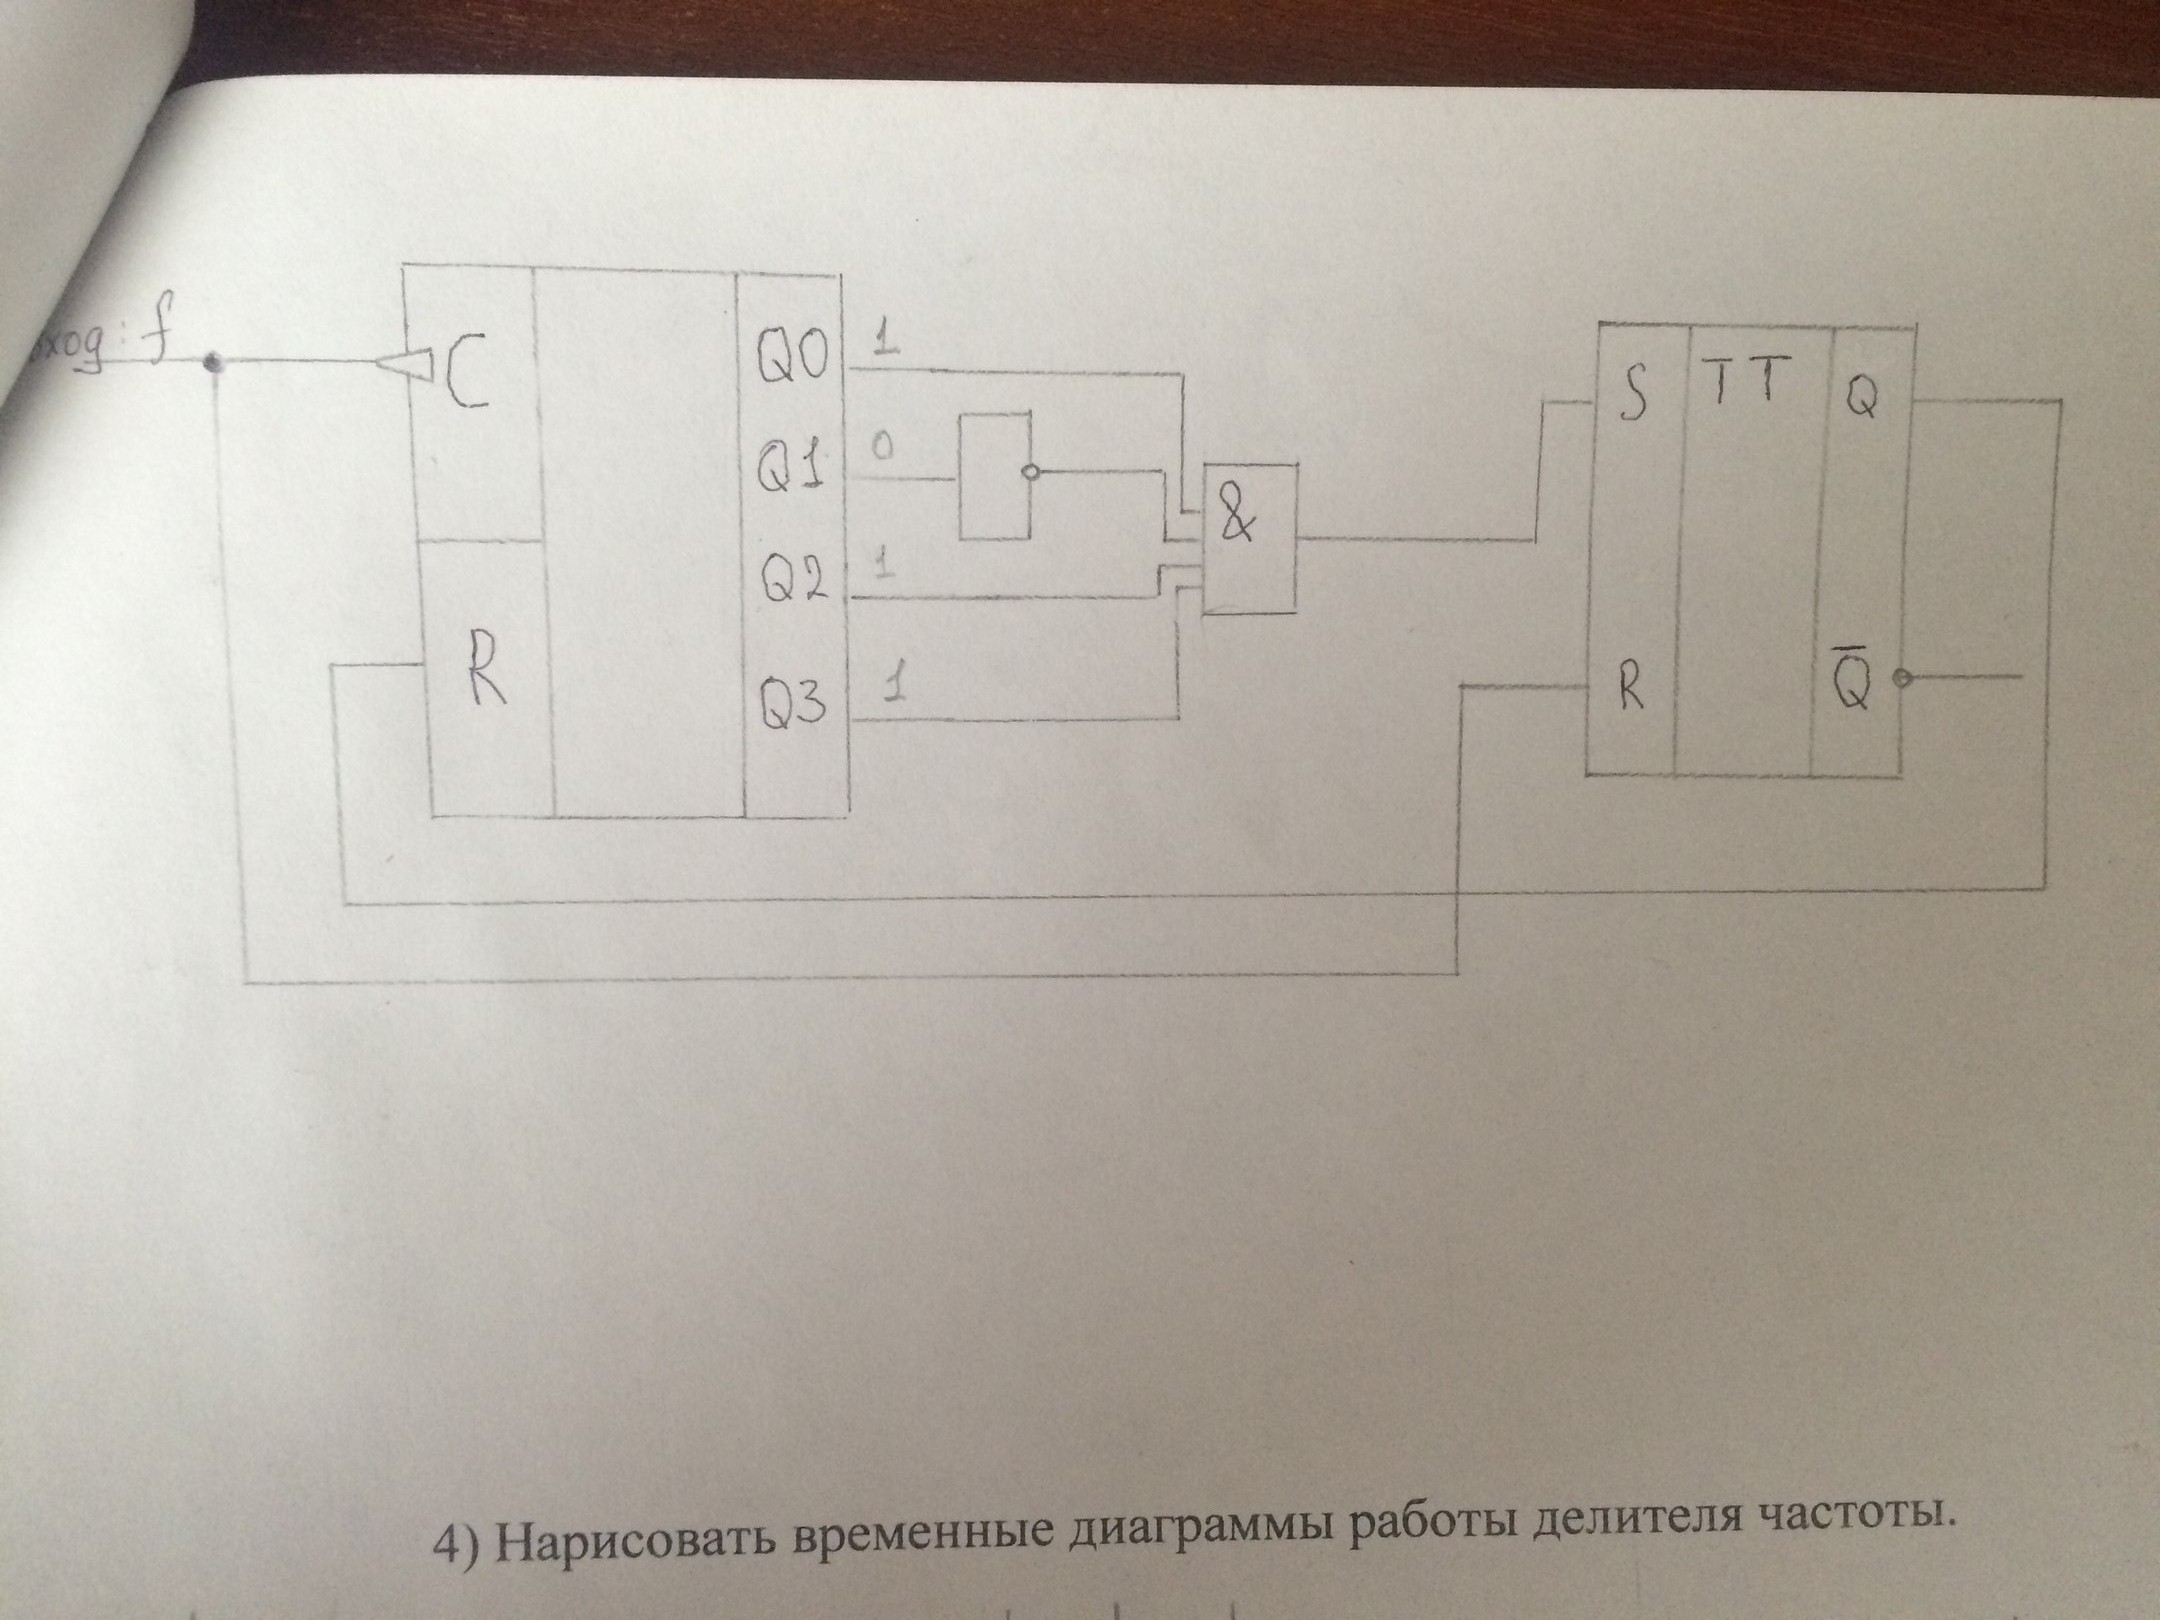 вход: f
C
R
Q0 1
Q1 0
Q2 1
Q3 1
&
S TT Q
R Q̅
4) Нарисовать временные диаграммы работы делителя частоты.